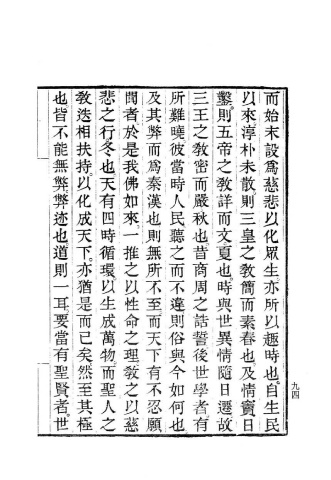 而始末設爲慈悲以化眾生亦所以趣時也自生民
以來淳朴未散則三皇之教簡而素春也及情竇日
鑿則五帝之教詳而文夏也時與世異情隨日遷故
三王之教密而嚴秋也昔商周之誥誓後世學者有
所難曉彼當時人民聽之而不違則俗與今如何也
及其弊而爲秦漢也則無所不至而天下有不忍願
聞者於是我佛如來一推之以性命之理教之以慈
悲之行冬也天有四時循環以生成萬物而聖人之
教迭相扶持以化成天下亦猶是而已矣然至其極
也皆不能無弊弊迹也道則一耳要當有聖賢者世
九四